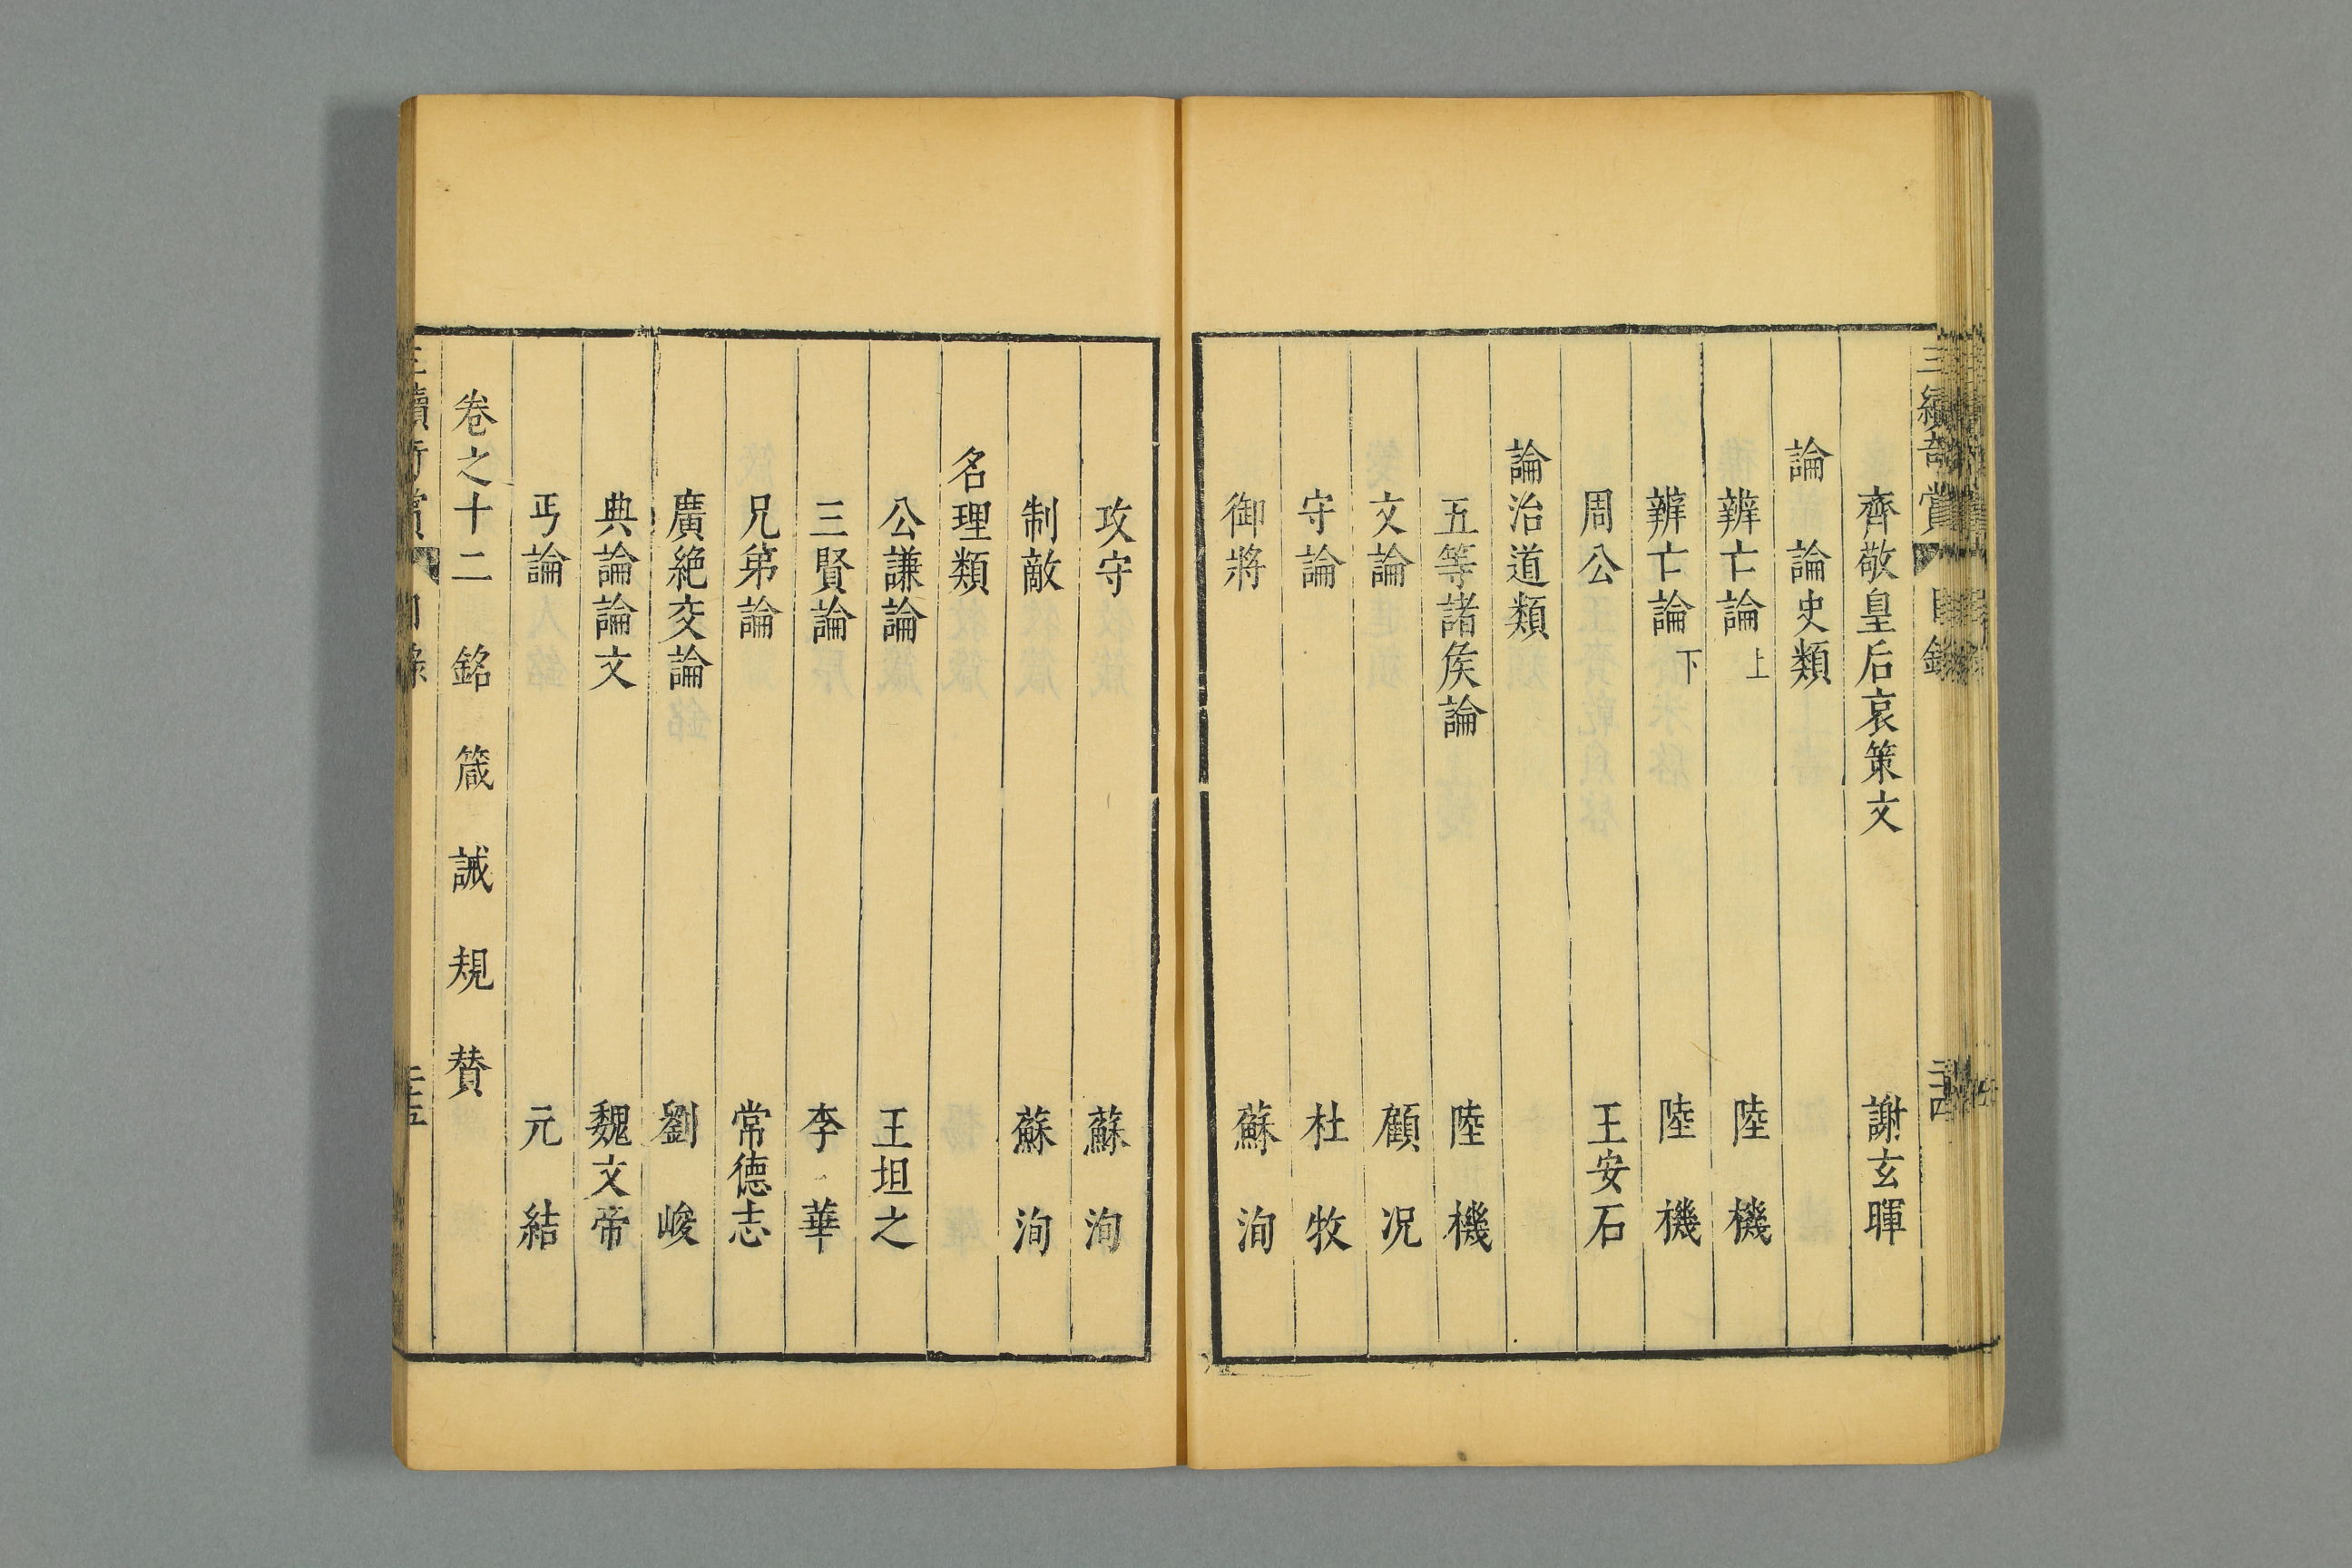 三續奇賞 目錄 二十四
齊敬皇后哀策文 謝玄暉
論 論史類
辨亡論上 陸機
辨亡論下 陸機
周公 王安石
論治道類
五等諸矦論 陸機
文論 顧況
守論 杜牧
御將 蘇洵
攻守 蘇洵
制敵 蘇洵
名理類
公謙論 王坦之
三賢論 李華
兄弟論 常德志
廣絕交論 劉峻
典論論文 魏文帝
丐論 元結
卷之十二 銘 箴 誡 規 贊